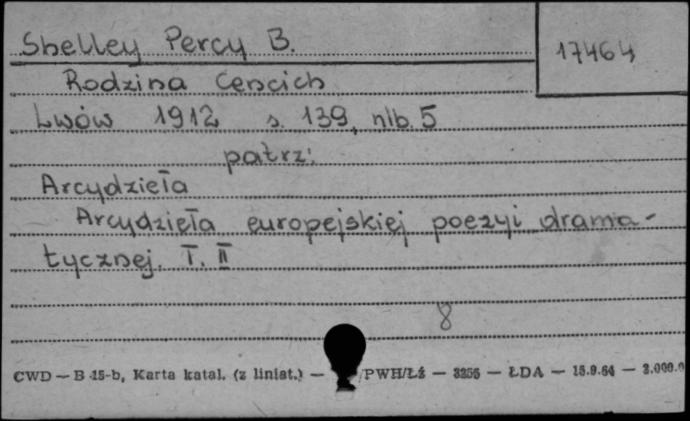 Shelley Percy B.
17464
Rodzina Cencich
Lwów 1912 s. 139, nlb. 5
patrz:
Arcydzieła
Arcydzieła europejskiej poezyi drama-
tycznej. T. II
8
CWD — B 15-b, Karta katal. (z liniat.) — PWH/Łź — 3256 — ŁDA — 15.9.64 — 3.000.0